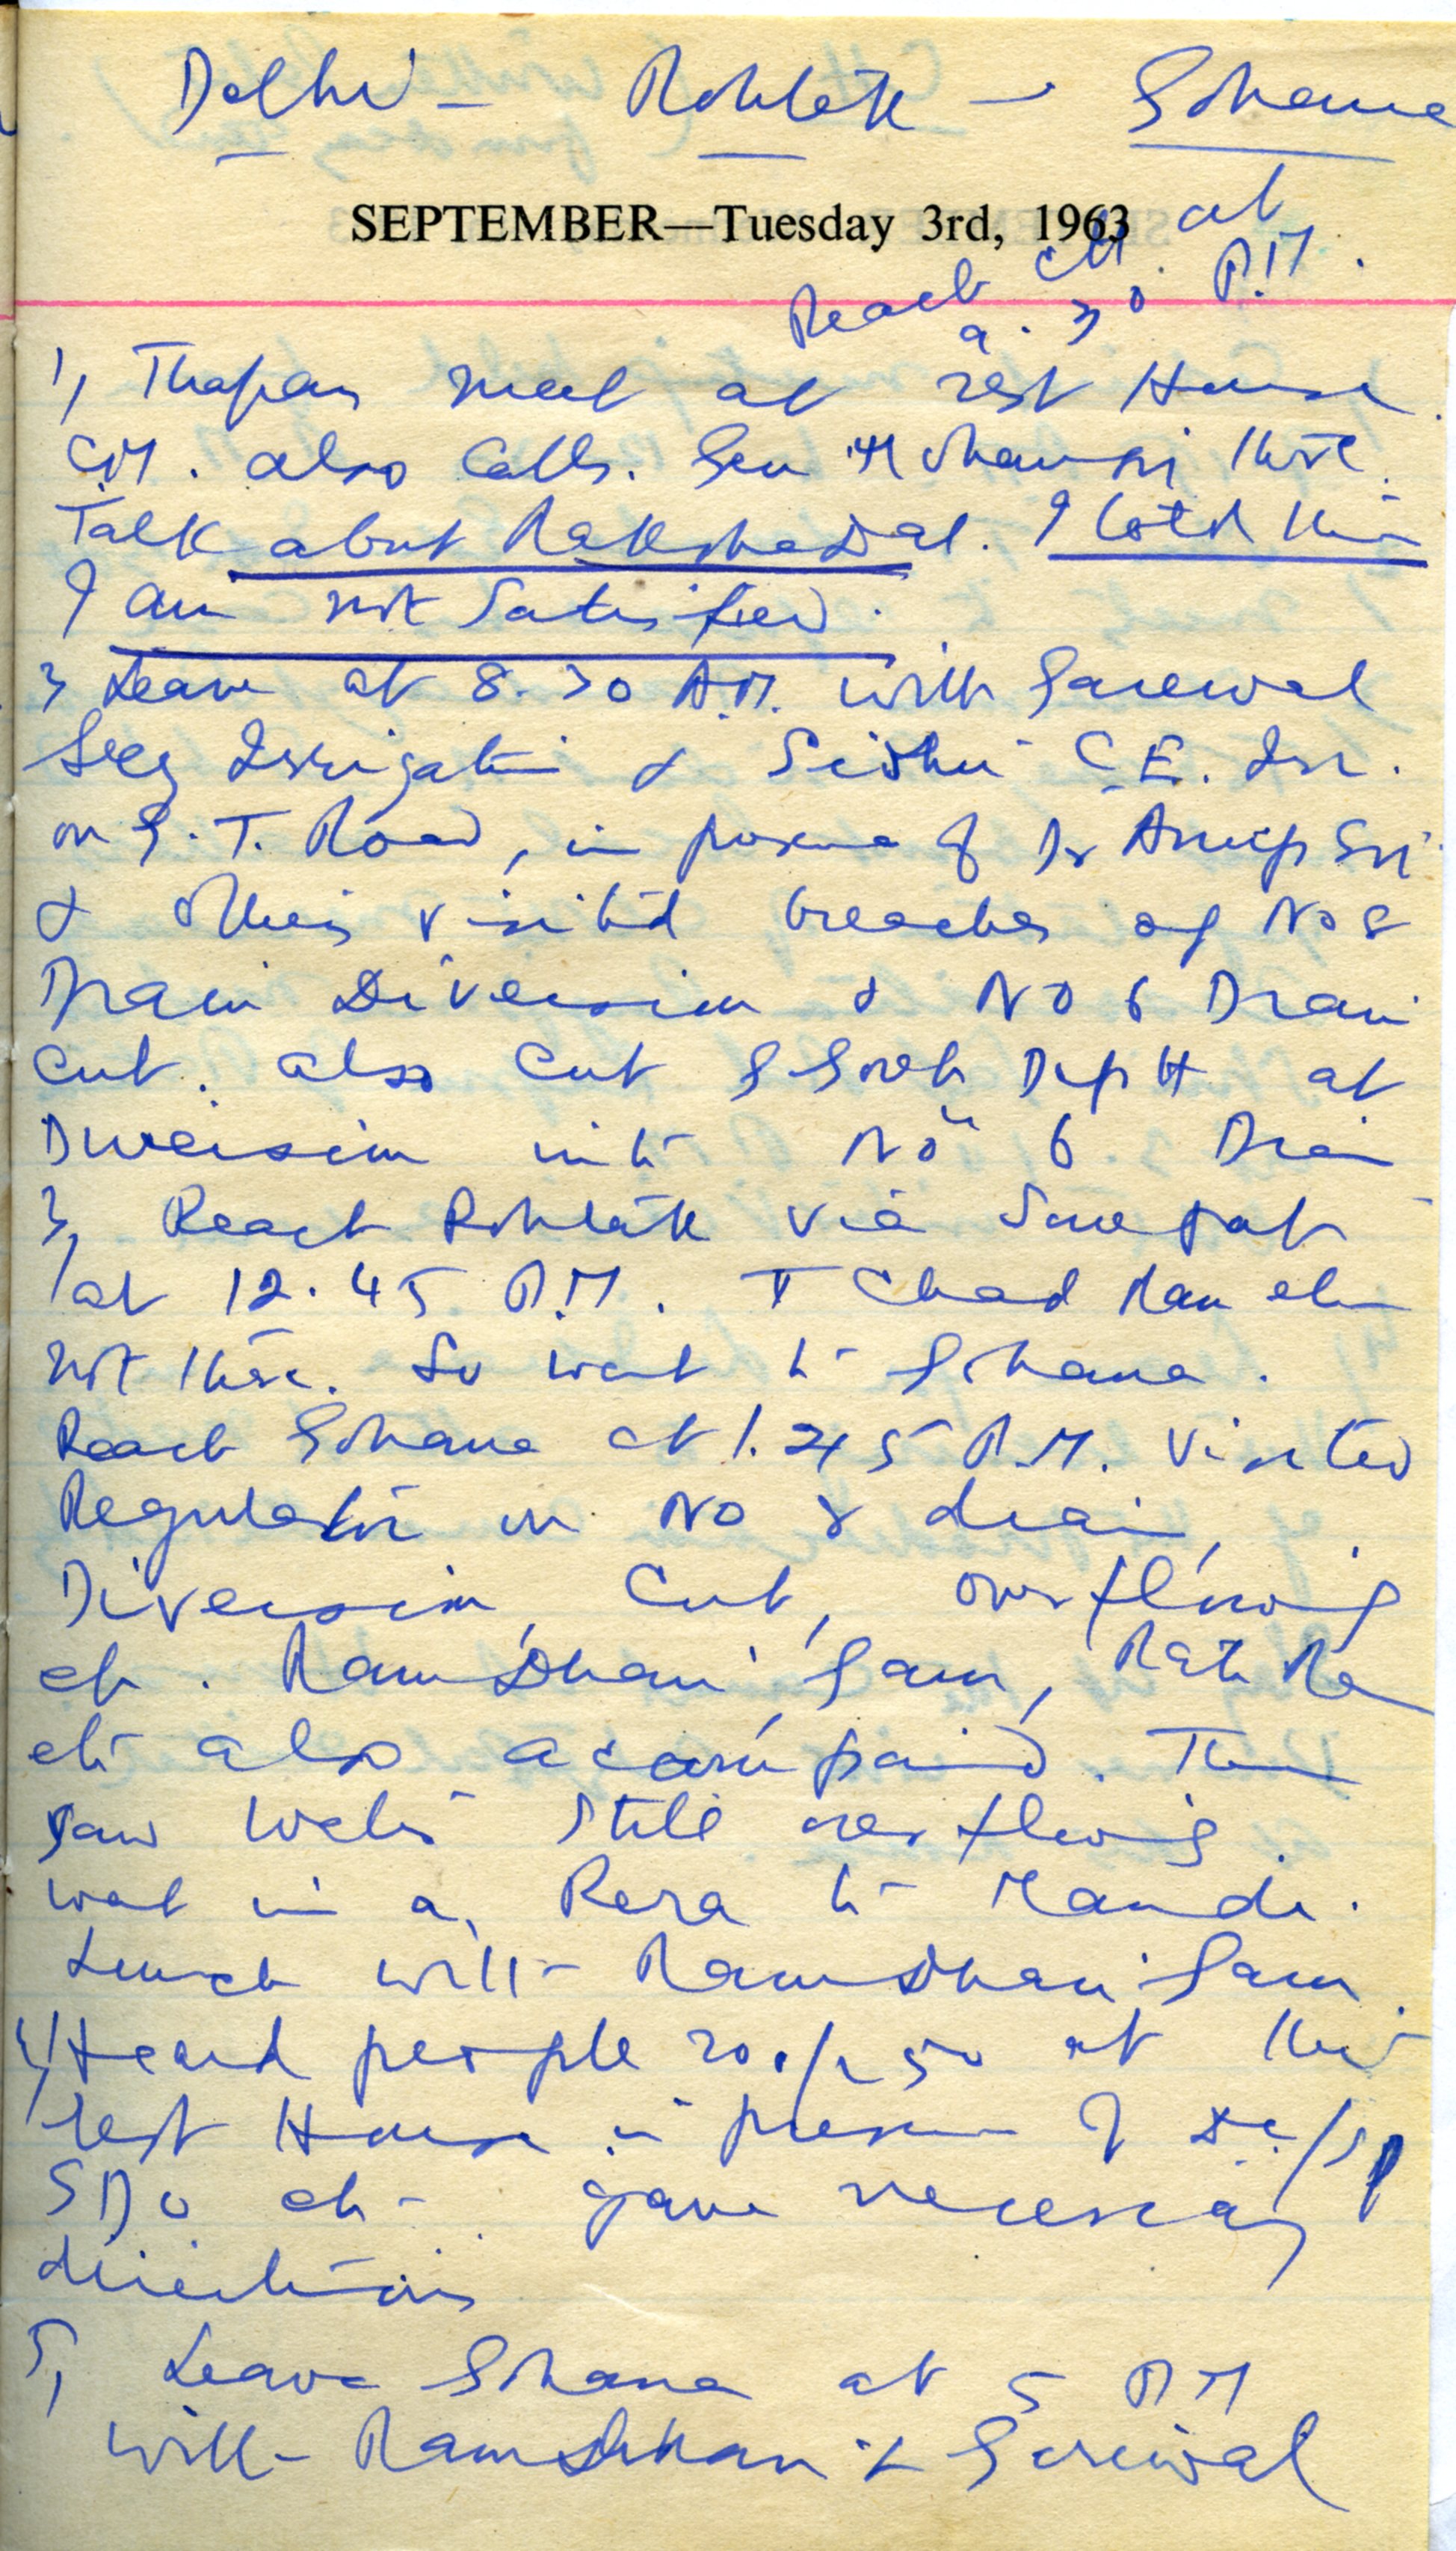 Delhi - Rohtak - Gohana
SEPTEMBER—Tuesday 3rd, 1963
Reach at
9.30 P.M.
1, Thapar meet at rest House.
C.M. also Calls. Gen Mohan there.
Talk about Rakshadal. I told him
I am not Satisfied.
Leave at 8.30 A.M. with Garewal
Secy Irrigation & Sidhu C.E. Irr.
on G.T. Road, in presence of Anup
& others visited breaches of No 8
Drain Diversion & No 6 Drain
cut. also cut Depth at
Diversion into No 6 Drain
3, Reach Rohtak via Sonepat
at 12.45 P.M. Chand Ram
not there. So went to Gohana.
Reach Gohana at 1.45 P.M. Visited
Regulator on No 8 drain,
Diversion, Cut, overflowing
etc. Ramdhari Gaur,
etc also accompanied. Then
saw still overflowing.
went in a to Mandi.
Lunch with Ramdhari Gaur.
4, Heard people 200/250 at the
rest House in presence of DC/SP
SDO etc. gave necessary
directions
5, Leave Gohana at 5 P.M
with Ramdhari & Garewal